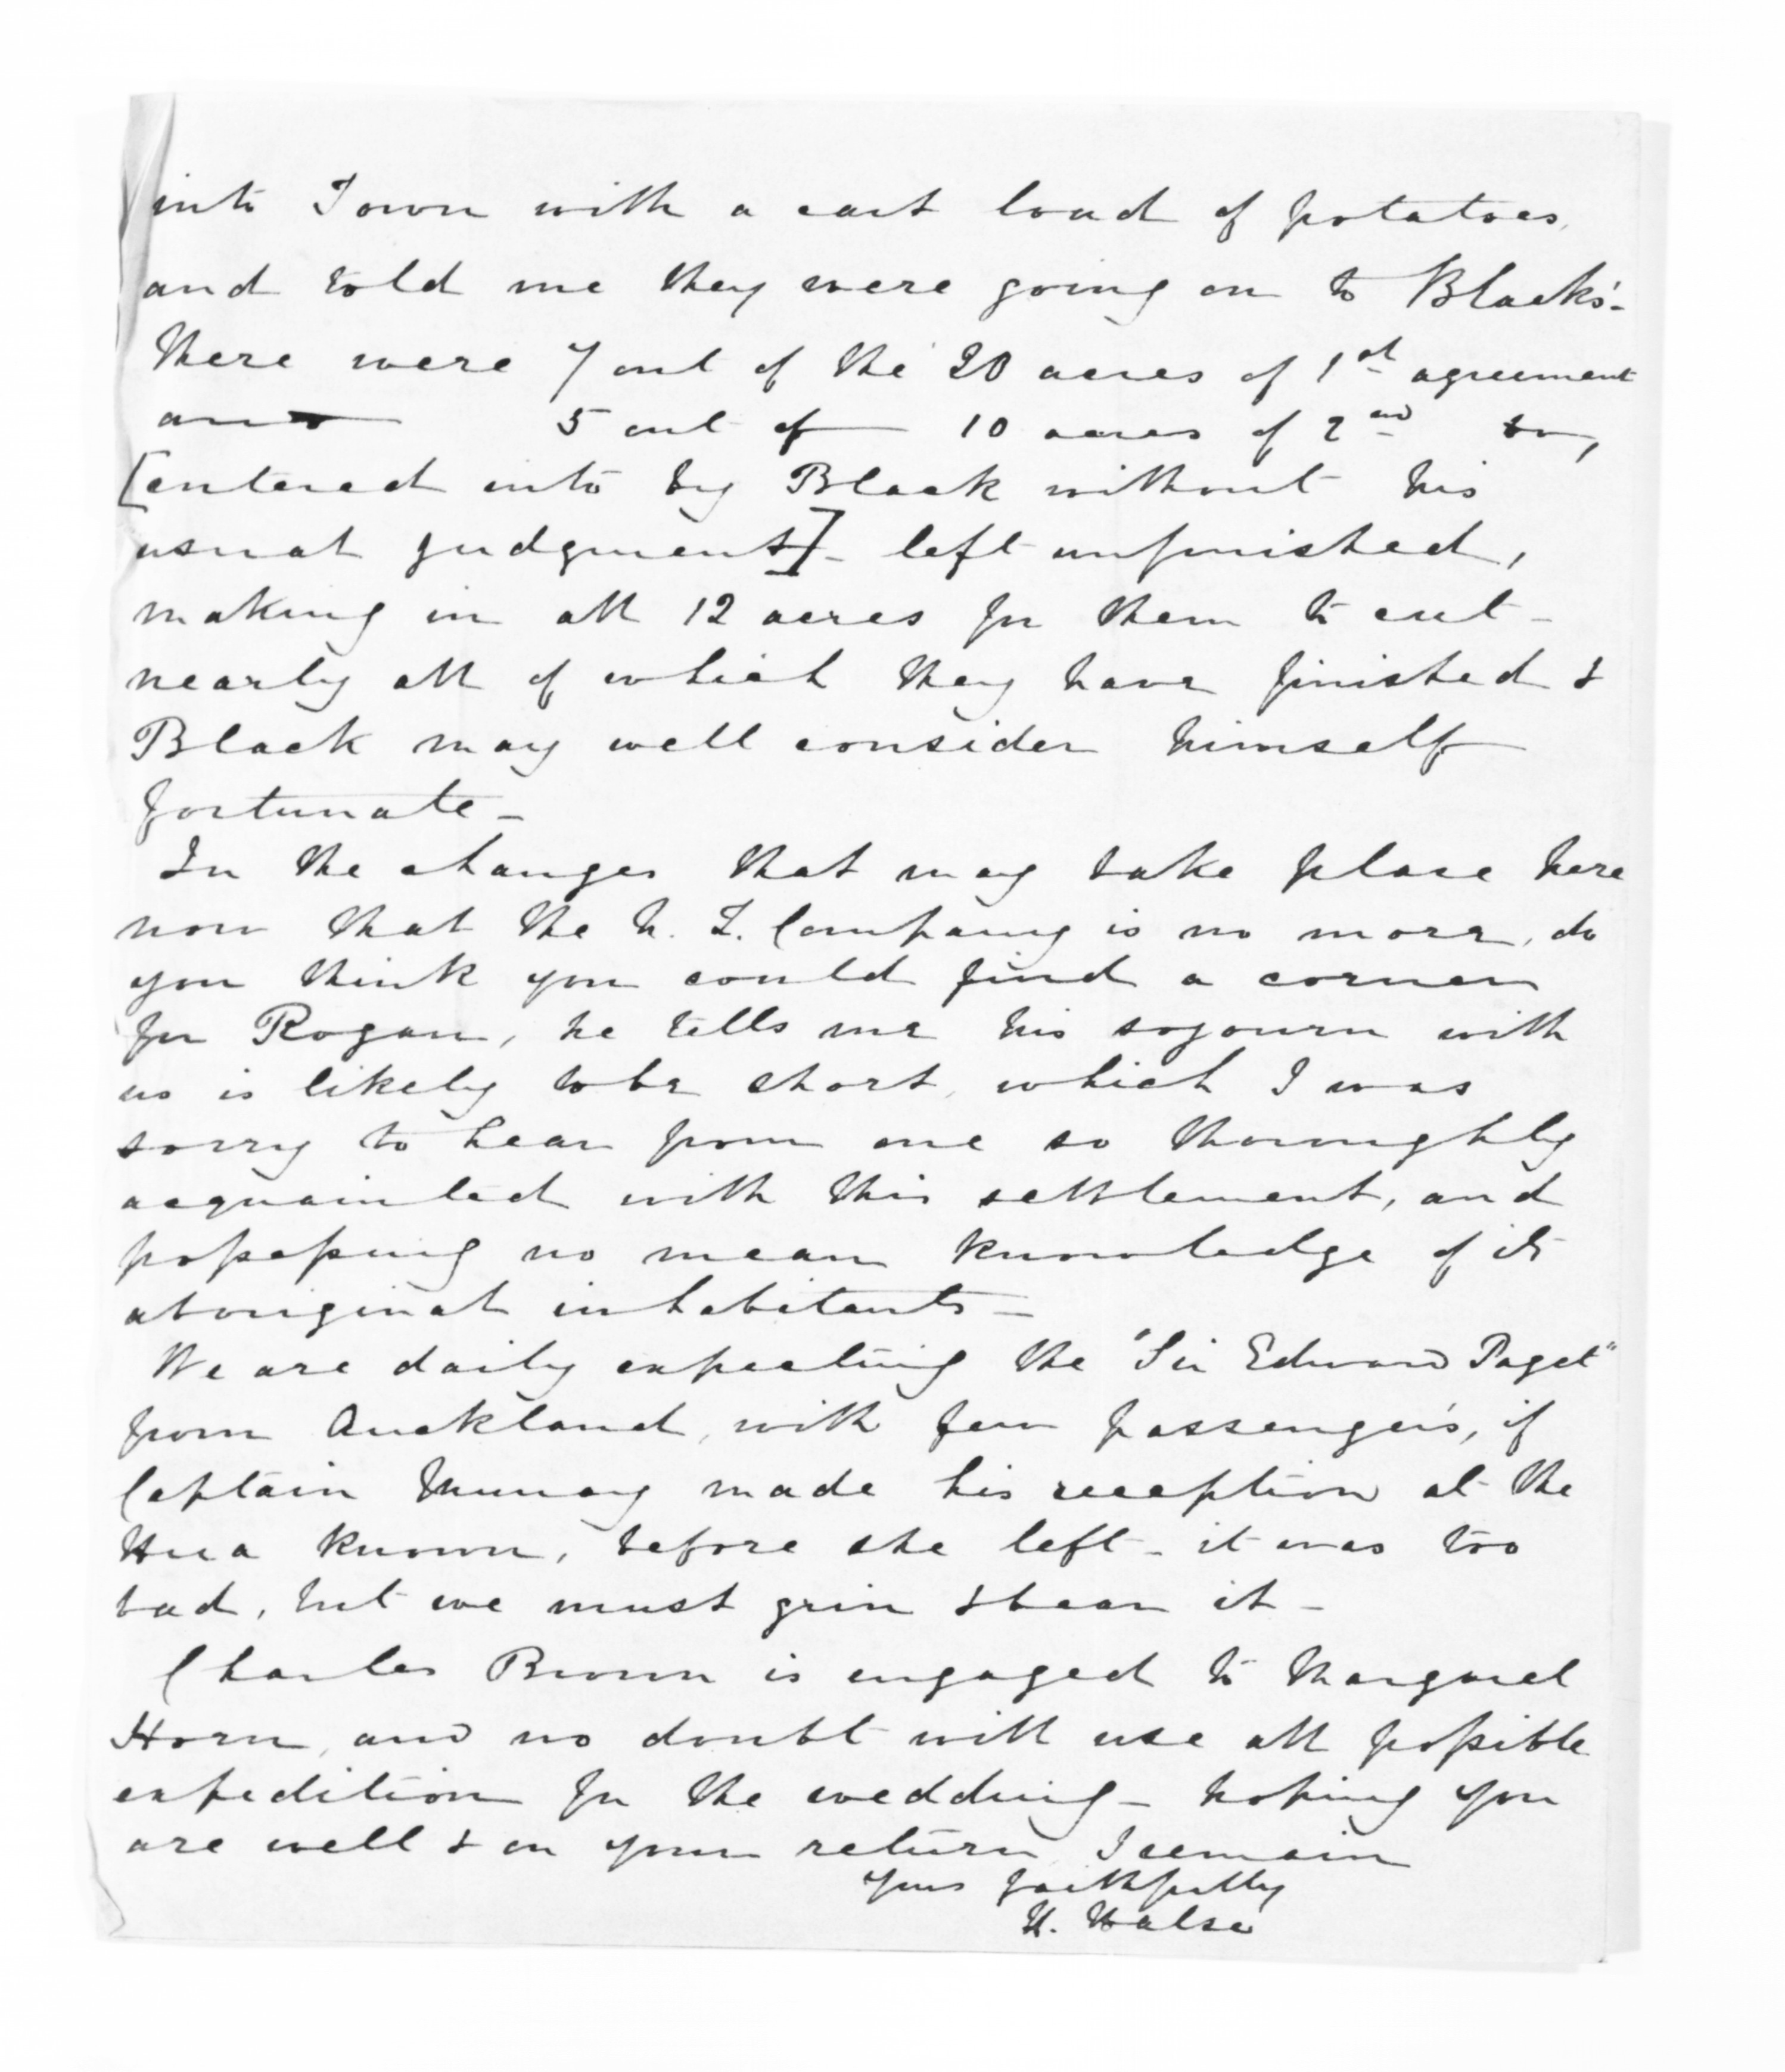 into Town with a cart load of potatoes,
and told me they were going on to Black's -
there were 7 out of the 20 acres of 1st agreement
and 5 out of 10 acres of 2nd do,
[entered into by Black without his
usual judgment] - left unfinished,
making in all 12 acres for them to cut -
nearly all of which they have finished &
Black may well consider himself
fortunate -
In the changes that may take place here
now that the N. Z. Company is no more, do
you think you could find a corner
for Rogan, he tells me his sojourn with
us is likely to be short, which I was
sorry to hear from one so thoroughly
acquainted with this settlement, and
possessing no mean knowledge of its
aboriginal inhabitants -
We are daily expecting the "Sir Edward Paget"
from Auckland, with few passengers, if
Captain Munay made his reception at the
Hua known, before she left - it was too
bad, but we must grin & bear it -
Charles Brown is engaged to Margaret
Horn, and no doubt will use all possible
expedition for the wedding - hoping you
are well & on your return I remain
Yours faithfully
H. Halse